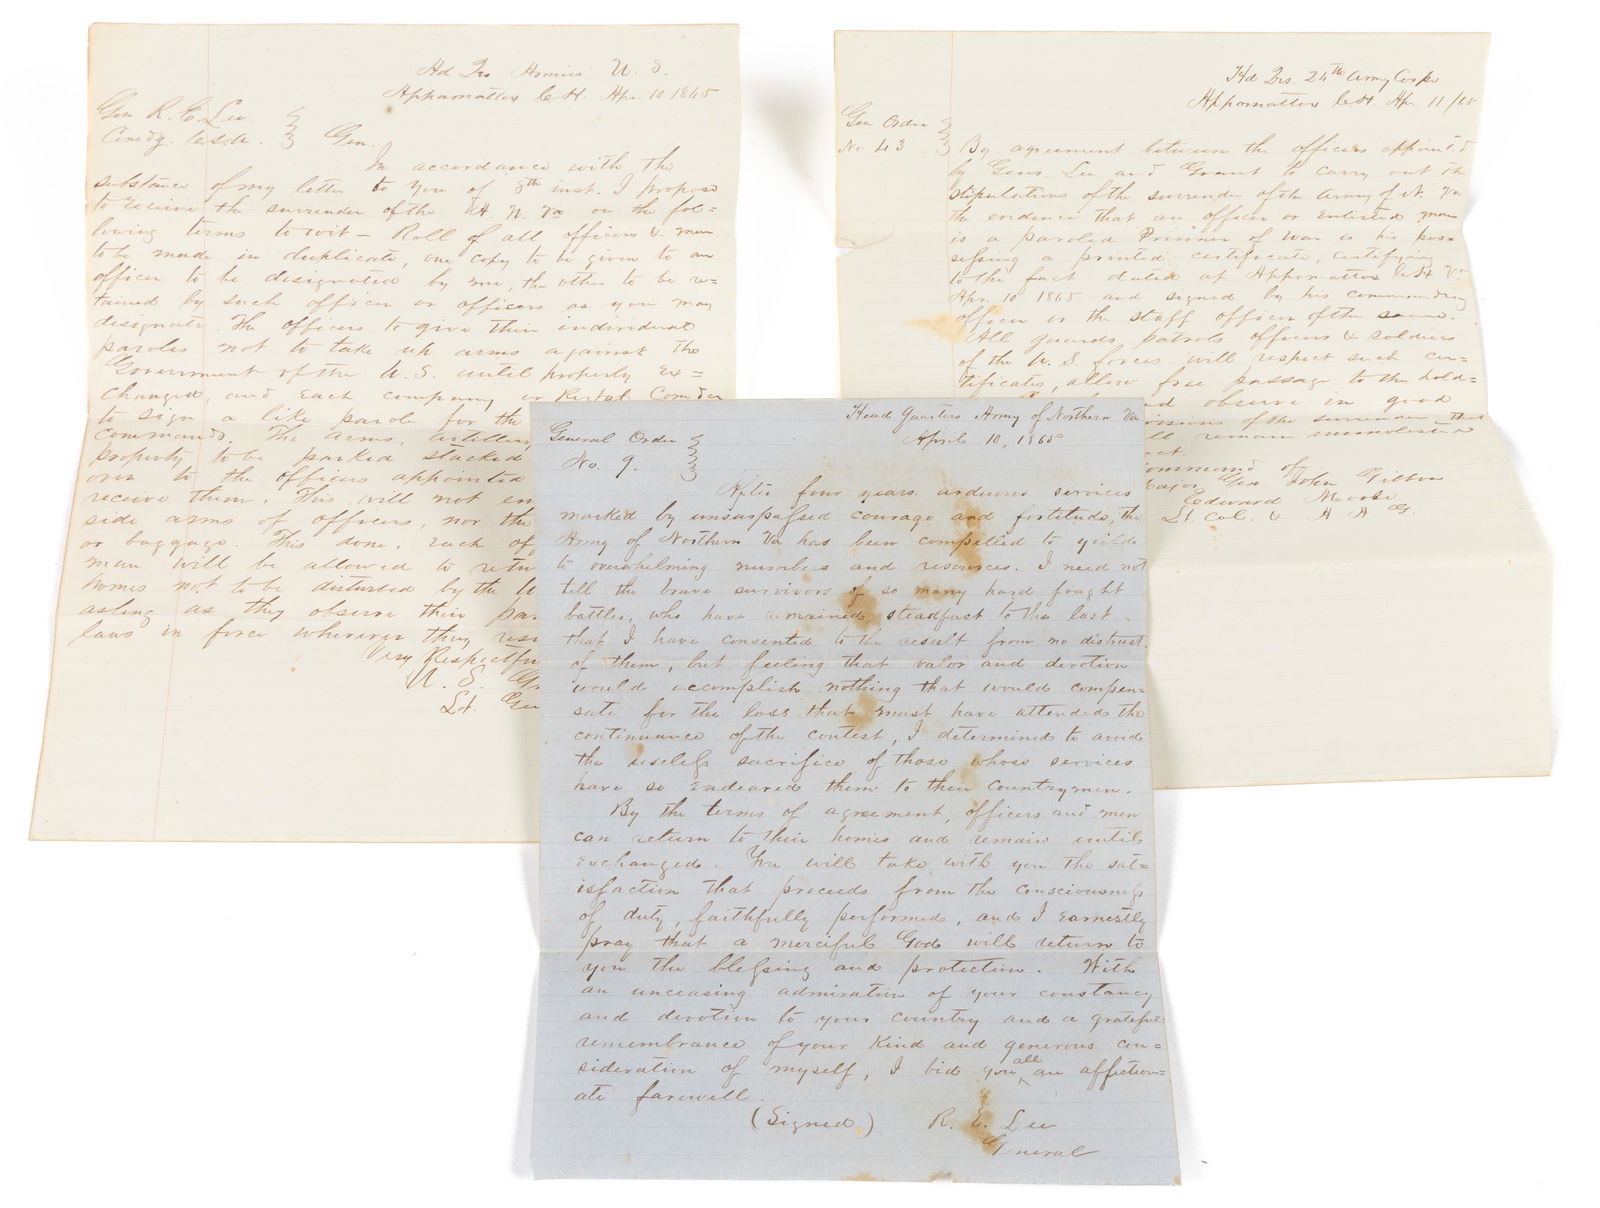 Hd Qrs Armies U. S.
Appomattox C. H. Apr. 10 1865
Gen R. E. Lee
Comdg. C.S.A. Gen.
In accordance with the
substance of my letter to you of 8th inst. I propose
to receive the surrender of the A. N. Va on the fol=
lowing terms to wit — Roll of all officers & men
to be made in duplicate, one copy to be given to an
officer to be designated by me, the other to be re=
tained by such officer or officers as you may
designate. The officers to give their individual
paroles not to take up arms against the
Government of the U. S. until properly Ex=
changed, and Each company or Regtal. Comder
to sign a like parole for the
commands. The arms, artillery,
property to be parked stacked
over to the officers appointed
receive them. This will not em
side arms of officers, nor the
or baggage. This done, each of
man will be allowed to retu
homes not to be disturbed by the U
as long as they observe their par
laws in force wherever they resi
Very Respectfu
U. S. Gr
Lt. Gen
Hd Qrs. 24th Army Corps
Appomattox C. H. Apr 11/65
Gen Order
No 43
By agreement between the officers appointed
by Gens. Lee and Grant to carry out the
stipulations of the surrender of the Army of N. Va
the evidence that an officer or Enlisted man
is a paroled Prisoner of war is his pos=
sessing a printed certificate, certifying
to the fact dated at Appomattox C H Va
Apr. 10 1865 and signed by his commanding
officer or the staff officer of the same.
All guards patrols officers & soldiers
of the U. S. forces will respect such cer=
tificates, allow free passage to the hold=
nd observe in good
visions of the surrender that
ll remain unmolested
ct.
ommand of
Major Gen. John Gibbon
Edward Moore
Lt. Col. & A A G.
Head Quarters Army of Northern Va
April 10, 1865
General Order
No. 9.
After four years arduous services
marked by unsurpassed courage and fortitude, the
Army of Northern Va has been compelled to yield
to overwhelming numbers and resources. I need not
tell the brave survivors of so many hard fought
battles, who have remained steadfast to the last
that I have consented to the result from no distrust
of them, but feeling that valor and devotion
would accomplish nothing that would compen=
sate for the loss that must have attended the
continuance of the contest, I determined to avoid
the useless sacrifice of those whose services
have so Endeared them to their Countrymen.
By the terms of agreement, officers and men
can return to their homes and remain until
Exchanged. You will take with you the sat=
isfaction that proceeds from the consciousness
of duty, faithfully performed, and I Earnestly
pray that a merciful God will return to
you the blessing and protection. With
an unceasing admiration of your constancy
and devotion to your country and a grateful
remembrance of your Kind and generous con=
sideration of myself, I bid you all an affection=
ate farewell.
(Signed) R. E. Lee
General